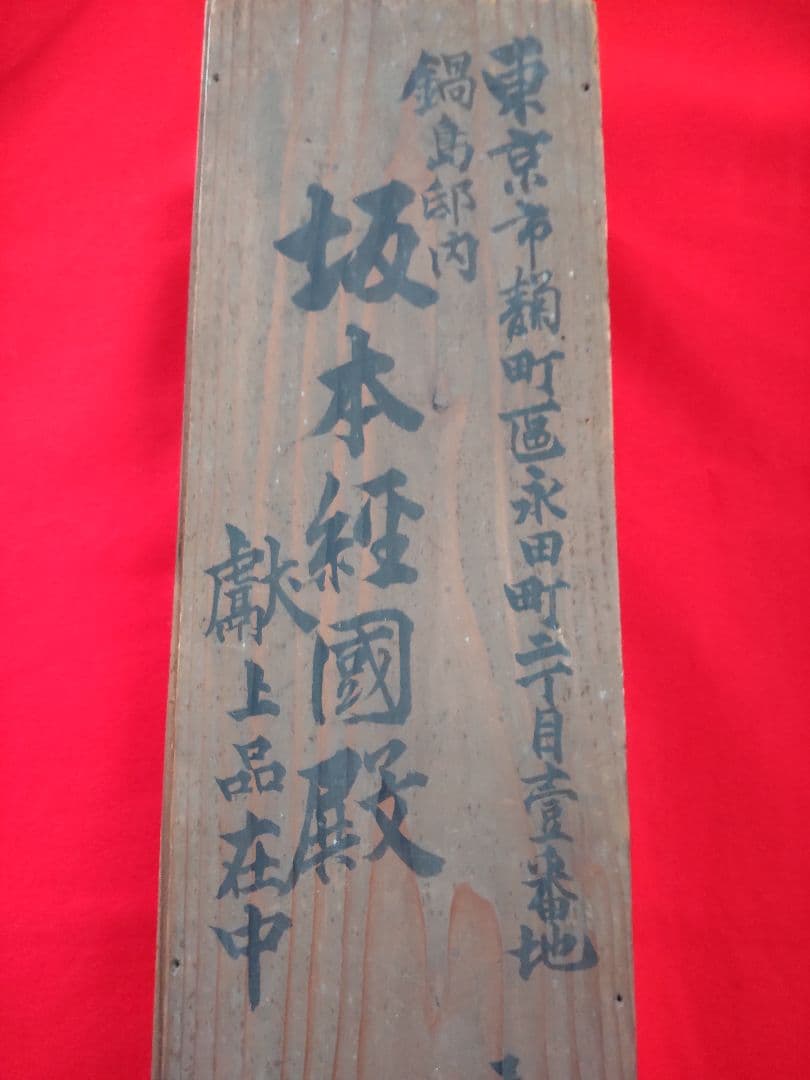 東京市麹町區永田町二丁目壹番地
鍋島邸内
坂本經國殿
獻上品在中